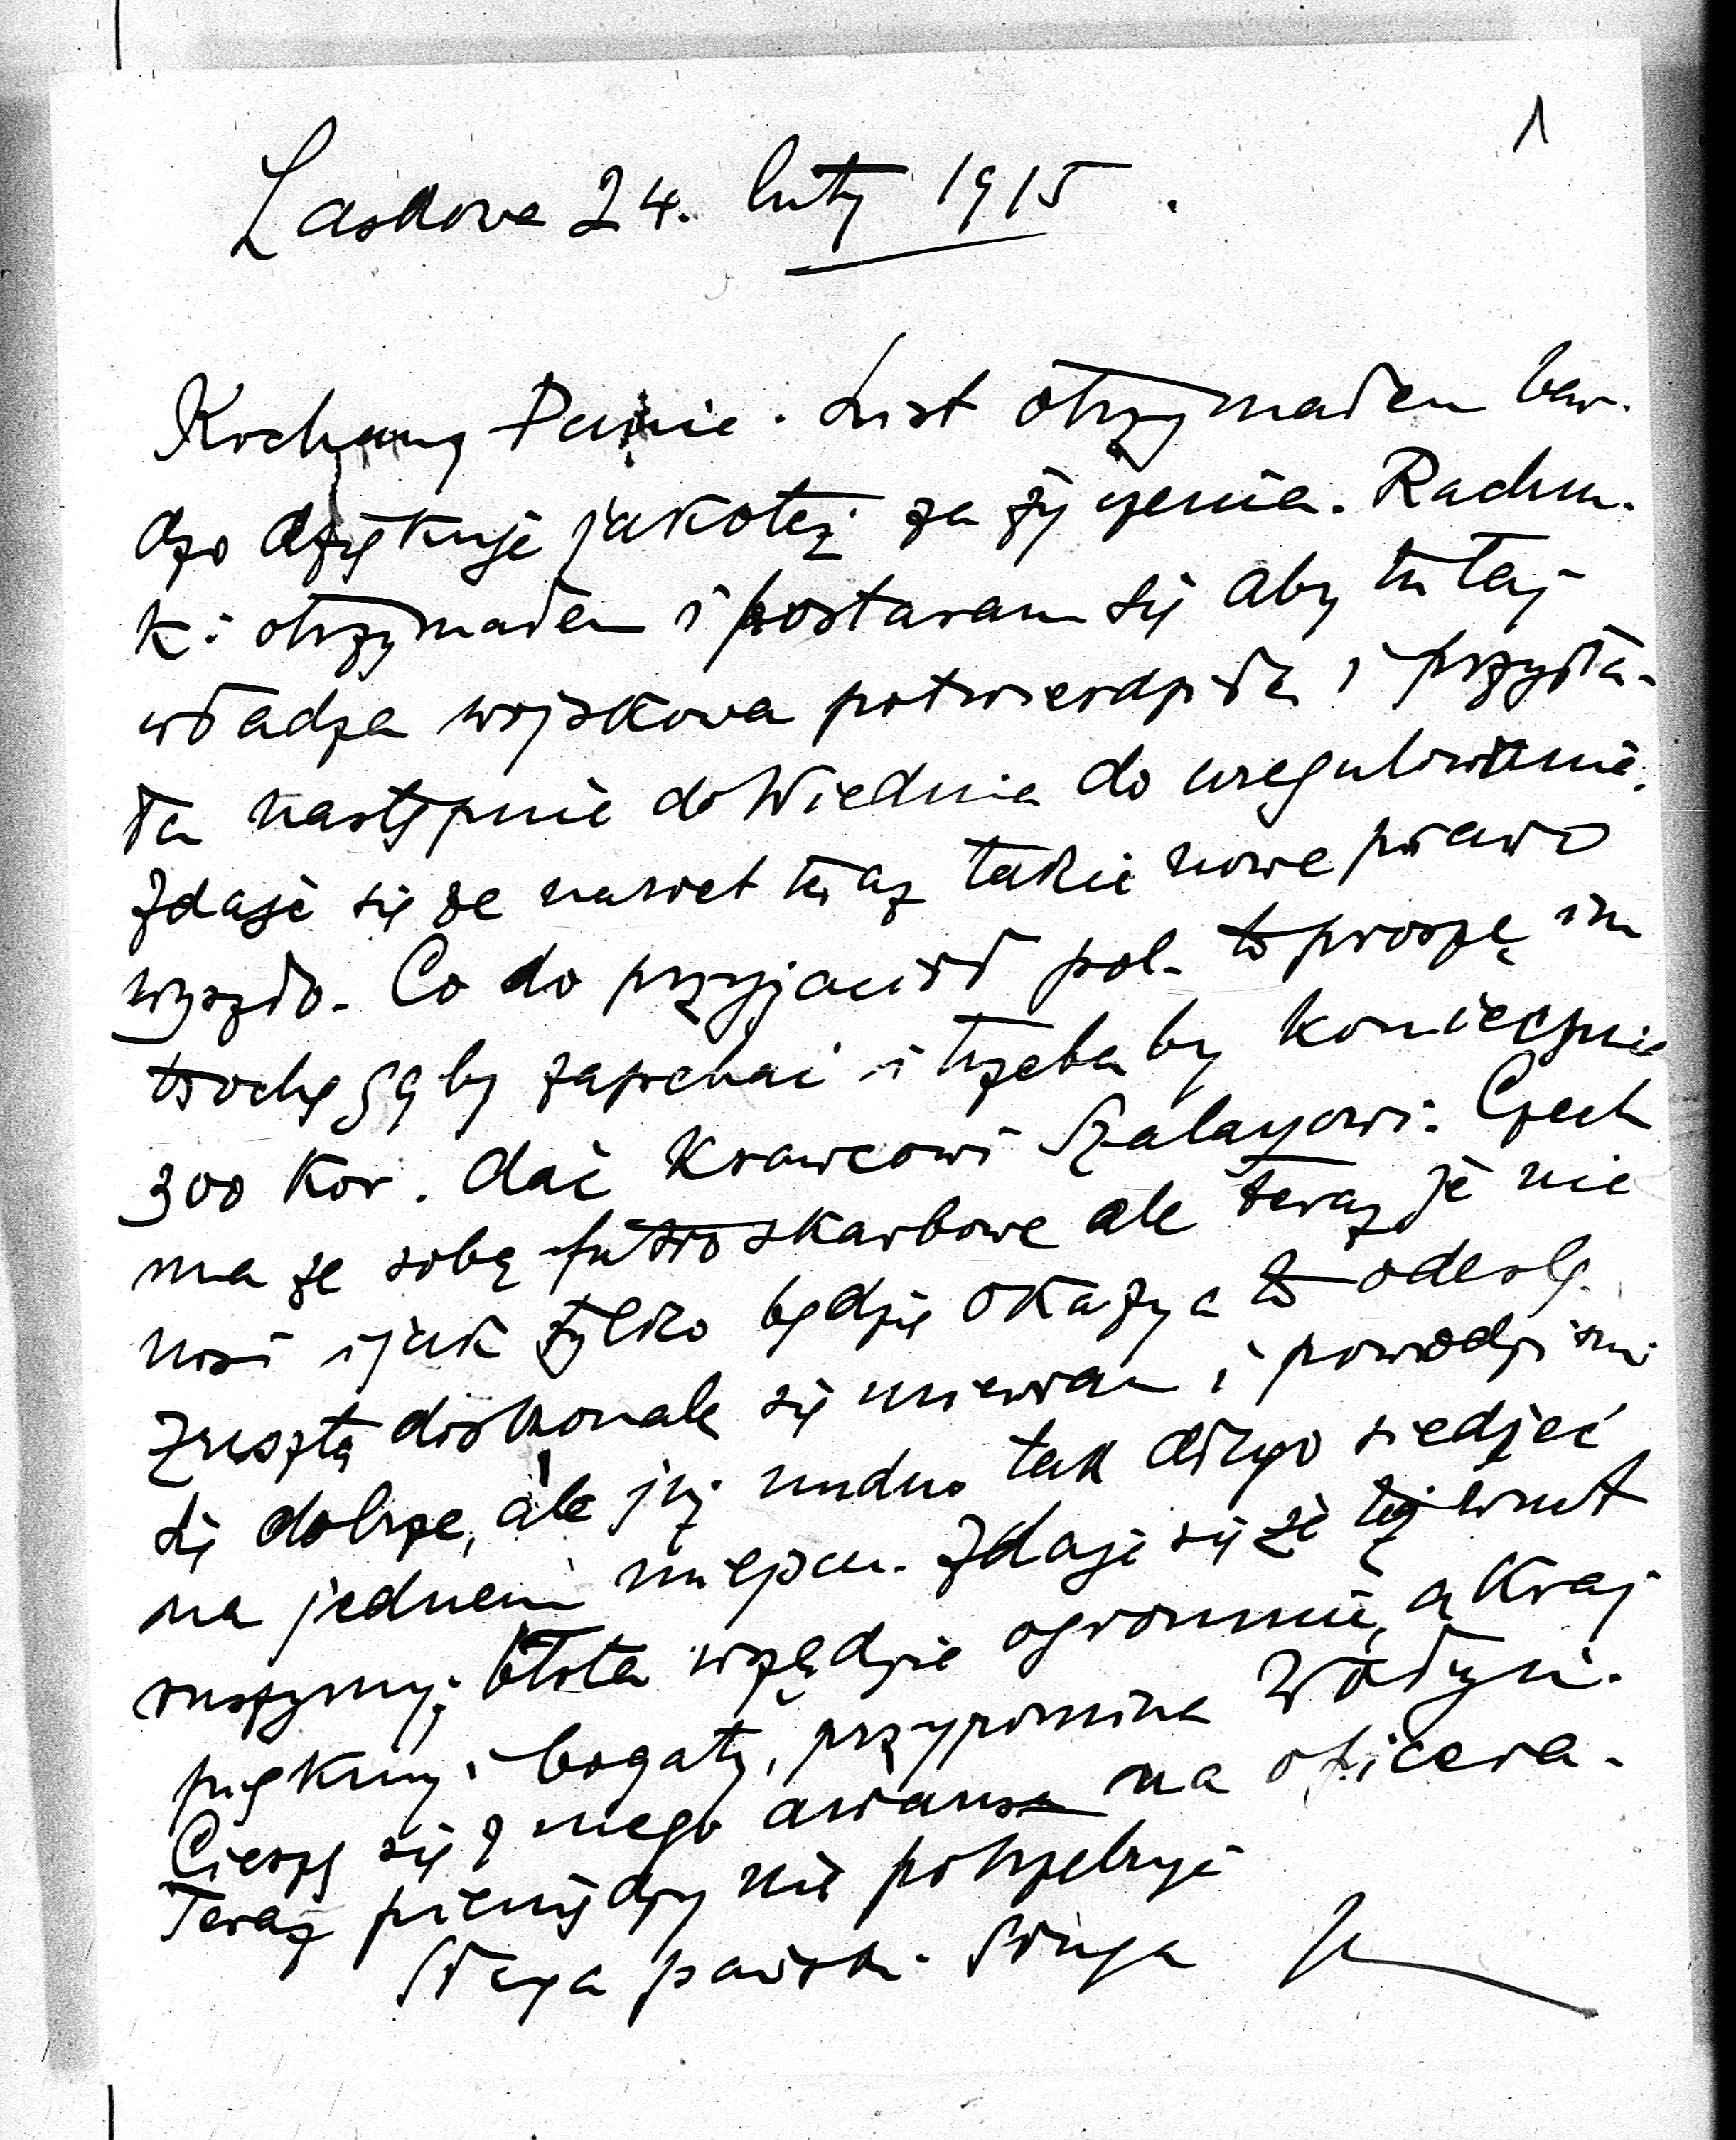 1
Laskowa 24. luty 1915.
Kochany Panie. List otrzymałem bar-
dzo dziękuję jakoteż za życzenia. Rachun-
ki otrzymałem i postaram się aby tutaj
władza wojskowa potwierdziła i przysła-
ła następnie do Wiednia do uregulowania.
Zdaje się że nawet teraz takie nowe prawo
wyszło. Co do przyjaciół pol. to proszę im
trochę gęby zapchać i trzeba by koniecznie
300 Kor. dać Krawcowi Szalayowi. Czech
ma ze sobą futro skarbowe ale teraz je nie
nosi i jak tylko będzie okazya to odeślę.
Zresztą doskonale się miewam i powodzi mi
się dobrze, ale już nudno tak długo siedzieć
na jednem miejscu. Zdaje się że też wnet
ruszymy; błota wszędzie ogromnie, a Kraj
piękny i bogaty, przypomina Wołyń.
Cieszę się z mego awansu na oficera.
Teraz pieniędzy nie potrzebuję
Sługa pański. Sługa